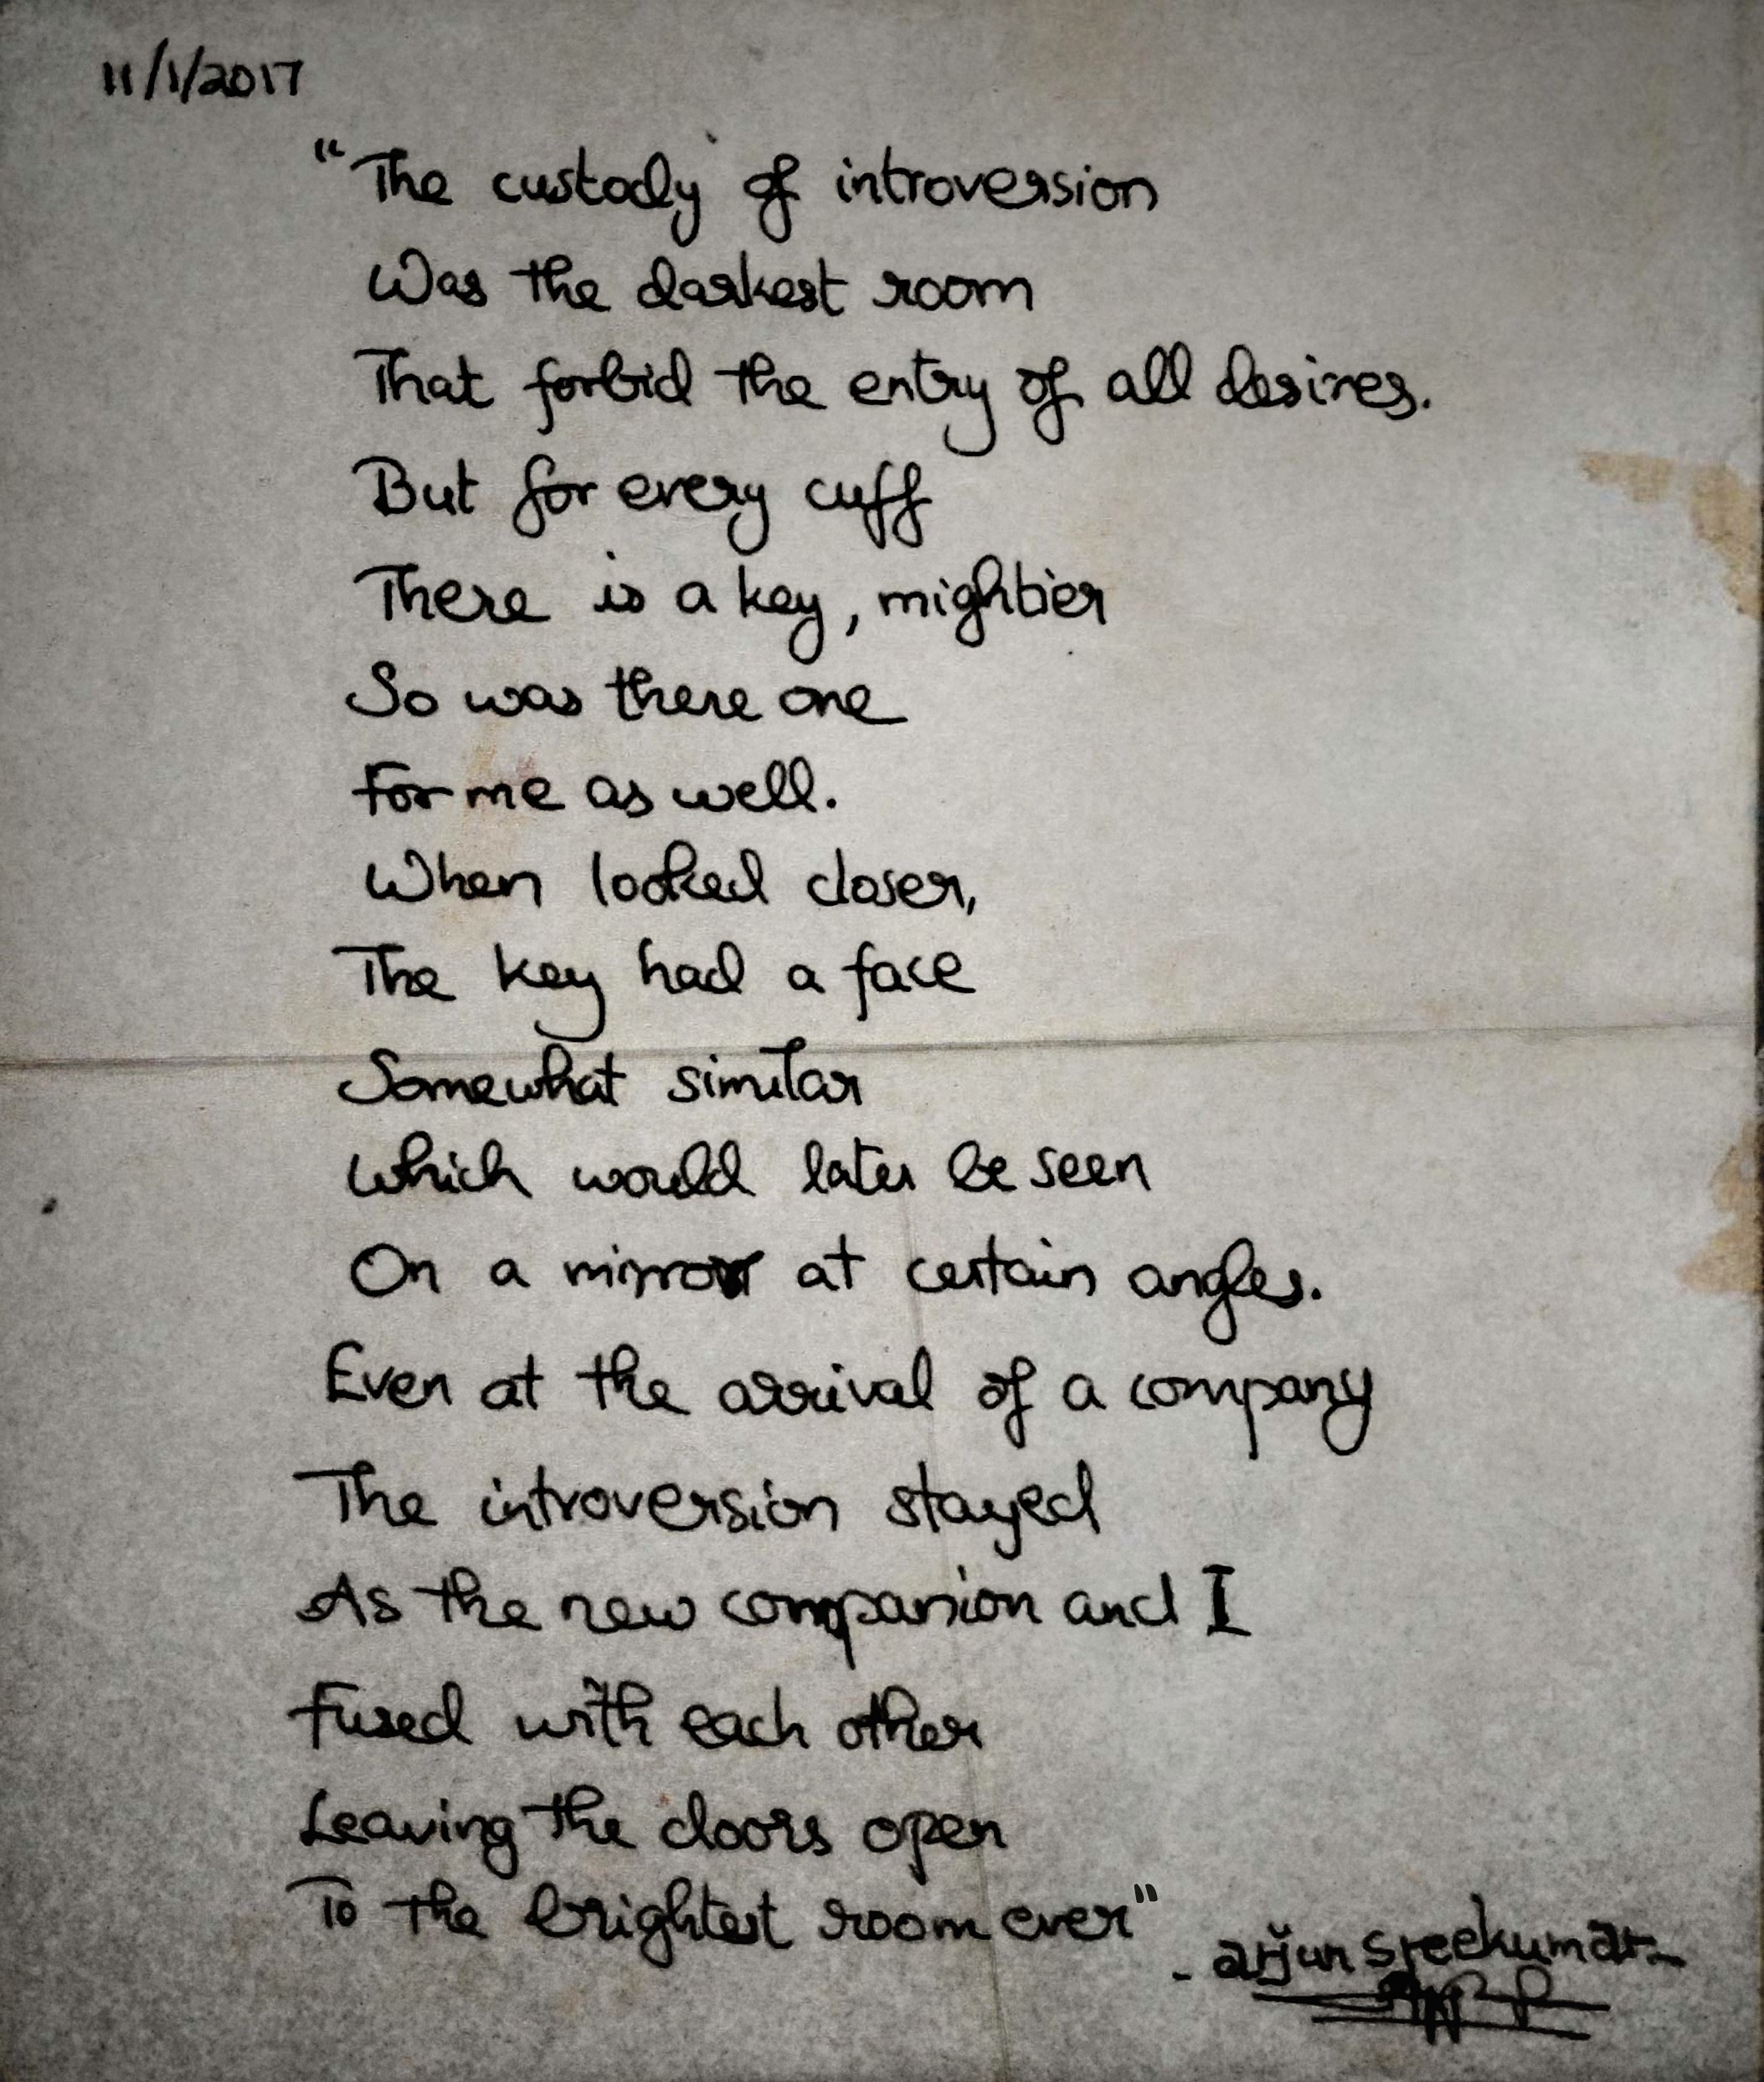 11/1/2017
"The custody of introversion
Was the darkest room
That forbid the entry of all desires.
But for every cuff
There is a key, mightier
So was there one
For me as well.
When looked closer,
The key had a face
Somewhat similar
Which would later be seen
On a mirror at certain angles.
Even at the arrival of a company
The introversion stayed
As the new companion and I
Fused with each other
Leaving the doors open
To the brightest room ever"
- arjun sreekumar